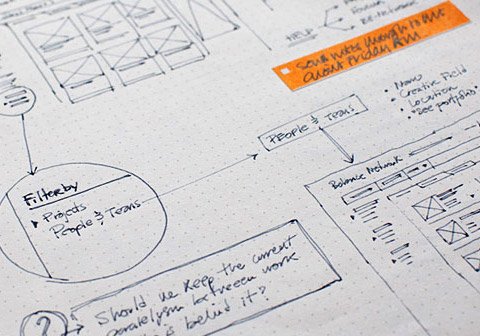 HELP
Send notes through to Mike
about Friday AM
Name
Creative Field
Location
See portfolio
PEOPLE & TEAMS
Behance Network
Filter by
Projects
People & Teams
?
Should we keep the current
parallelism between work
behind it?